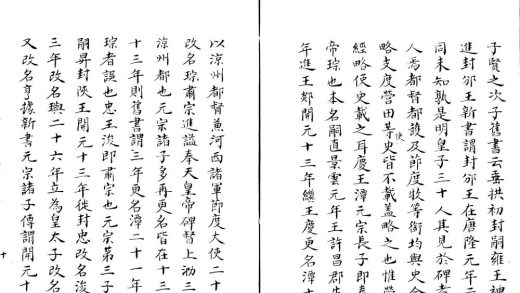 子賢之次子舊書云垂拱初封嗣雍王神
進封邠王新書謂封邠王在唐隆元年
同未知孰是明皇子三十人其見於碑者
人焉都督都護及節度牧等銜均與史合
略支度營田等使史皆不載蓋略之也惟
經略使史載之耳慶王潭元宗長子即奉
帝琮也本名嗣直景雲元年王許昌郡
年進王郯開元十三年繼王慶更名潭十
以涼州都督兼河西諸軍節度大使二十
改名琮肅宗進謚奉天皇帝碑督上泐三
涼州都也元宗諸子多再更名皆在十三
十三年則舊書謂三年更名潭二十一年
琮者誤也忠王浚即肅宗也元宗第三子
嗣昇封陝王開元十三年徙封忠改名浚
三年改名璵二十六年立為皇太子改名
又改名亨據新書元宗諸子傳謂開元十
十